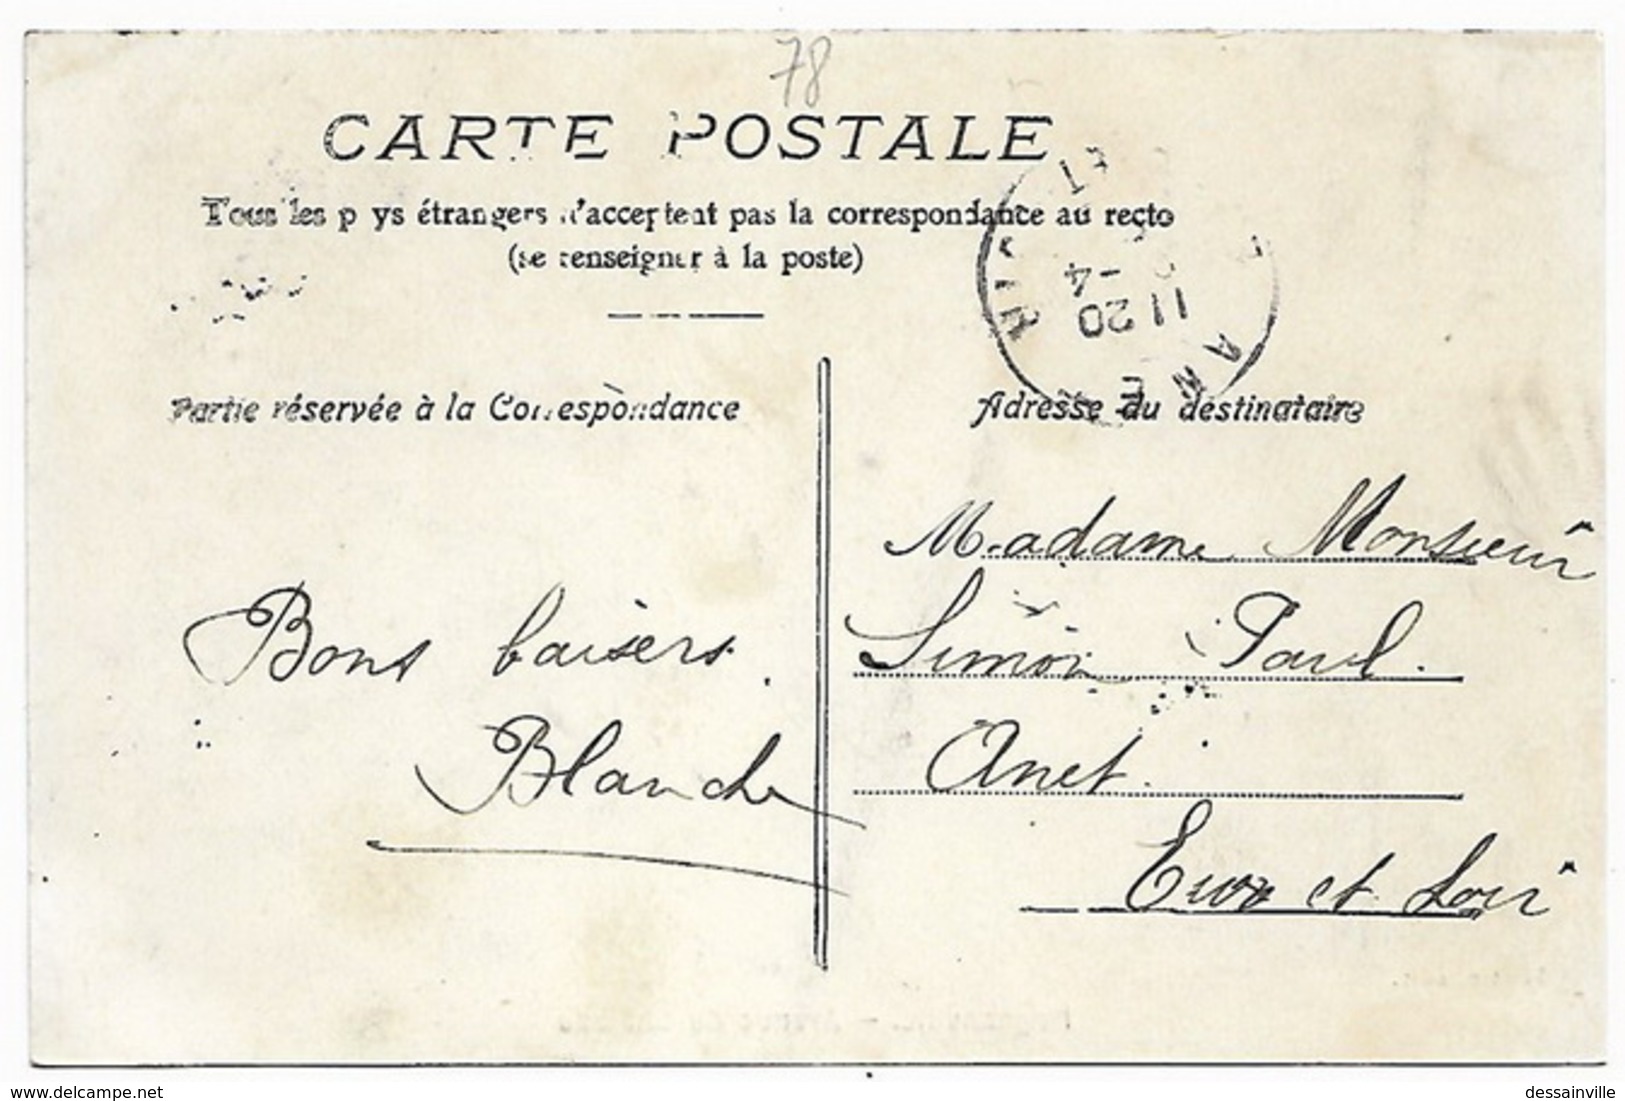 78
CARTE POSTALE
Tous les pays étrangers n'acceptent pas la correspondance au recto
(se renseigner à la poste)
11 20
-4
Partie réservée à la Correspondance
Adresse du destinataire
Bons baisers.
Blanche
Madame Monsieur
Simon Paul.
Anet.
Eure et Loir
delcampe.net
dessainville